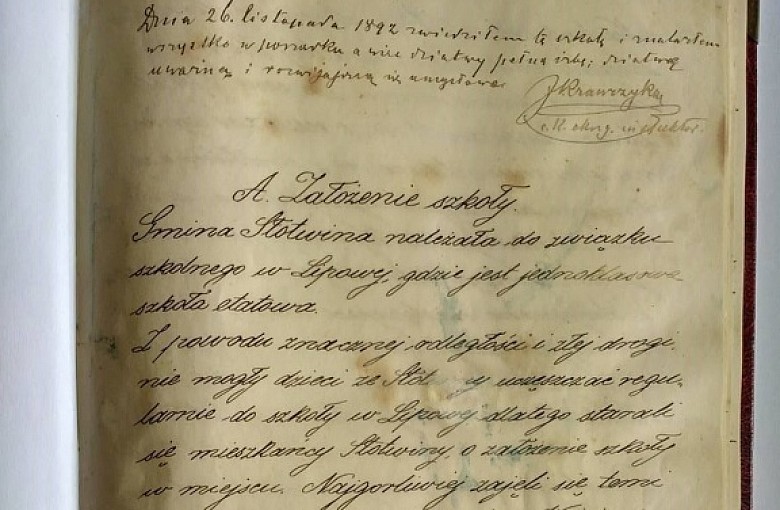 Dnia 26. listopada 1892 zwiedziłem tę szkołę i znalazłem
wszystko w porządku a więc dziatwy pełną izbę; dziatwę
uważną i rozwijającą się umysłowo.
JKrawczyk
c. k. okrg. inspektor.
A. Założenie szkoły.
Gmina Słotwina należała do związku
szkolnego w Lipowej, gdzie jest jednoklasowa
szkoła etatowa.
Z powodu znacznej odległości i złej drogi
nie mogły dzieci ze Słotwiny uczęszczać regu-
larnie do szkoły w Lipowej dlatego starali
się mieszkańcy Słotwiny, o założenie szkoły
w miejscu. Najgorliwiej zajęli się temi